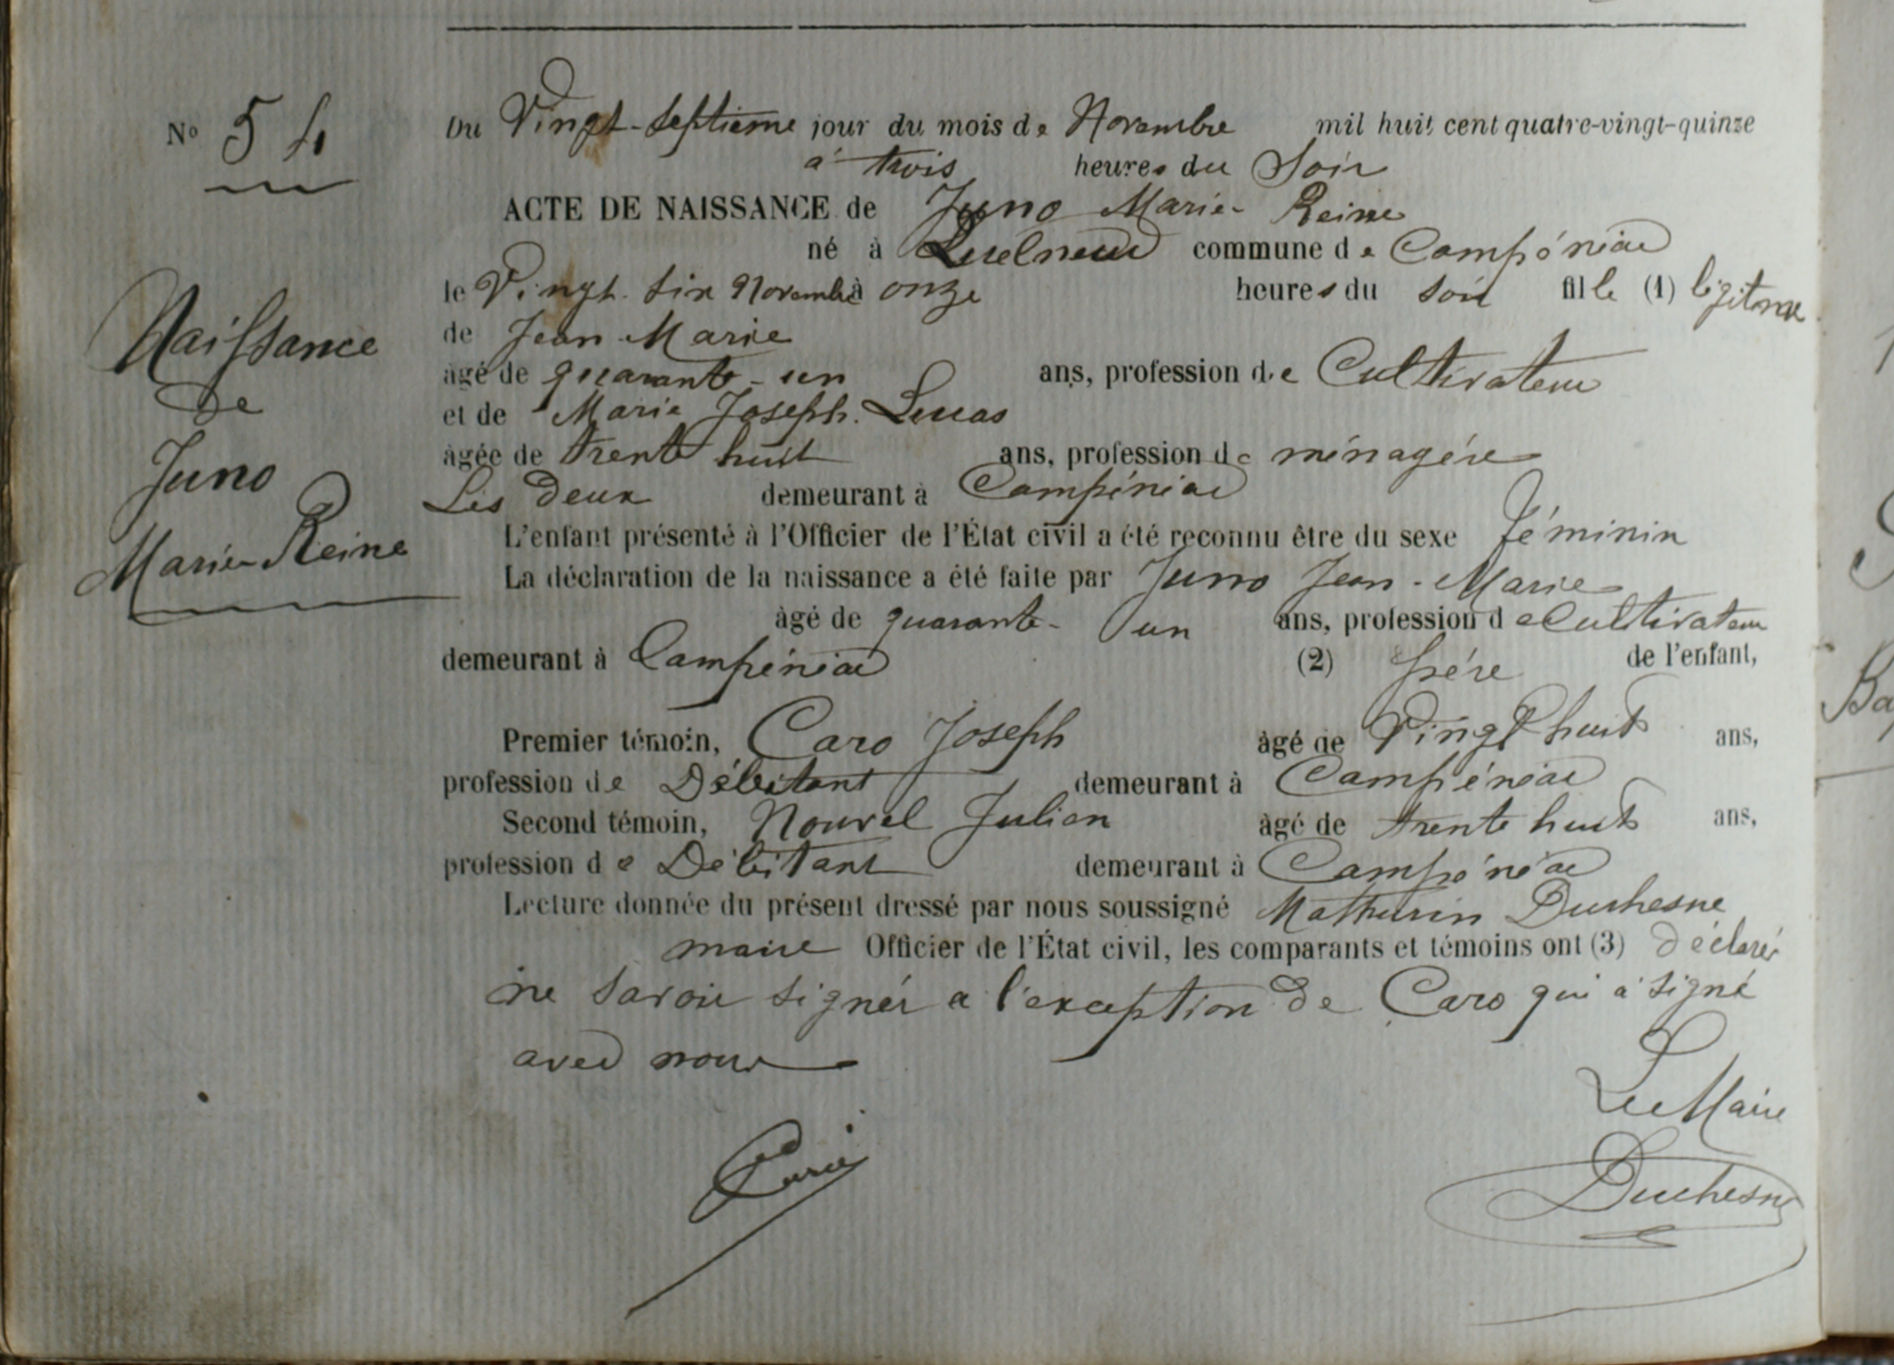 Nº 54
Du Vingt-Septième jour du mois de Novembre mil huit cent quatre-vingt-quinze
à trois heures du Soir
ACTE DE NAISSANCE de Juno Marie Reine
né à Quelneuc commune de Campénéac
le Vingt-six Novembre à onze heures du soir fille (1) légitime
de Jean-Marie
âgé de quarante-un ans, profession de Cultivateur
et de Marie Joseph Lucas
âgée de trente huit ans, profession de ménagère
Les deux demeurant à Campénéac
L'enfant présenté à l'Officier de l'État civil a été reconnu être du sexe féminin
La déclaration de la naissance a été faite par Juno Jean-Marie
âgé de quarante-un ans, profession de Cultivateur
demeurant à Campénéac (2) père de l'enfant,
Premier témoin, Caro Joseph âgé de Vingt huit ans,
profession de Débitant demeurant à Campénéac
Second témoin, Nouvel Julien âgé de trente huit ans,
profession de Débitant demeurant à Campénéac
Lecture donnée du présent dressé par nous soussigné Mathurin Duchesne
maire Officier de l'État civil, les comparants et témoins ont (3) déclaré
ne savoir signer a l'exception de Caro qui a signé
avec nous
Naissance
de
Juno
Marie-Reine
Le Maire
Duchesne